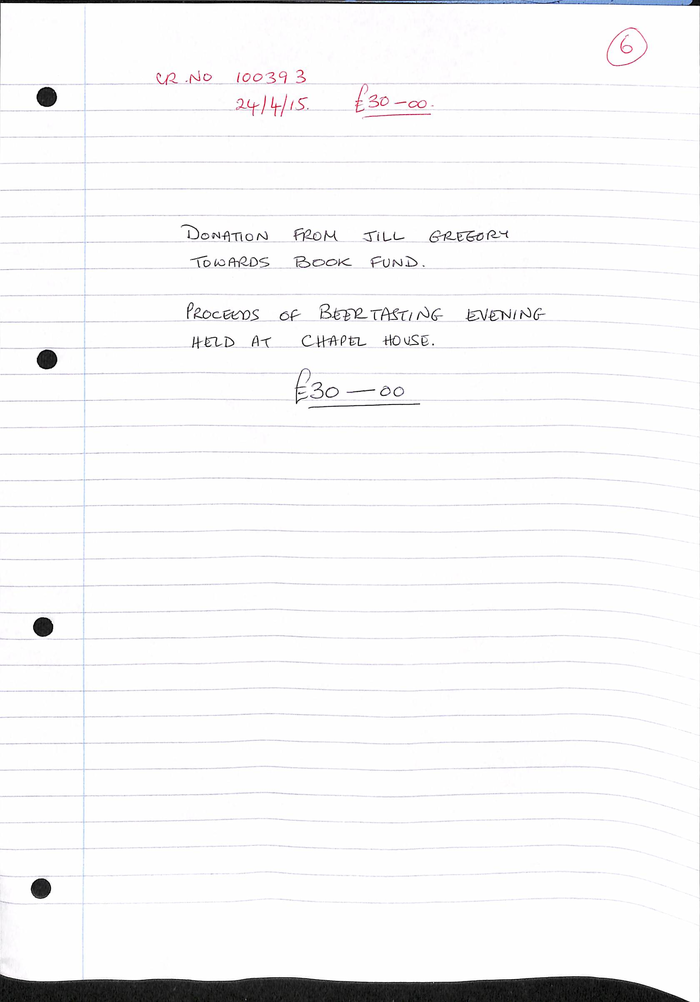 6
CR.NO 100393
24/4/15. £30-00.
DONATION FROM JILL GREGORY
TOWARDS BOOK FUND.
PROCEEDS OF BEERTASTING EVENING
HELD AT CHAPEL HOUSE.
£30—00